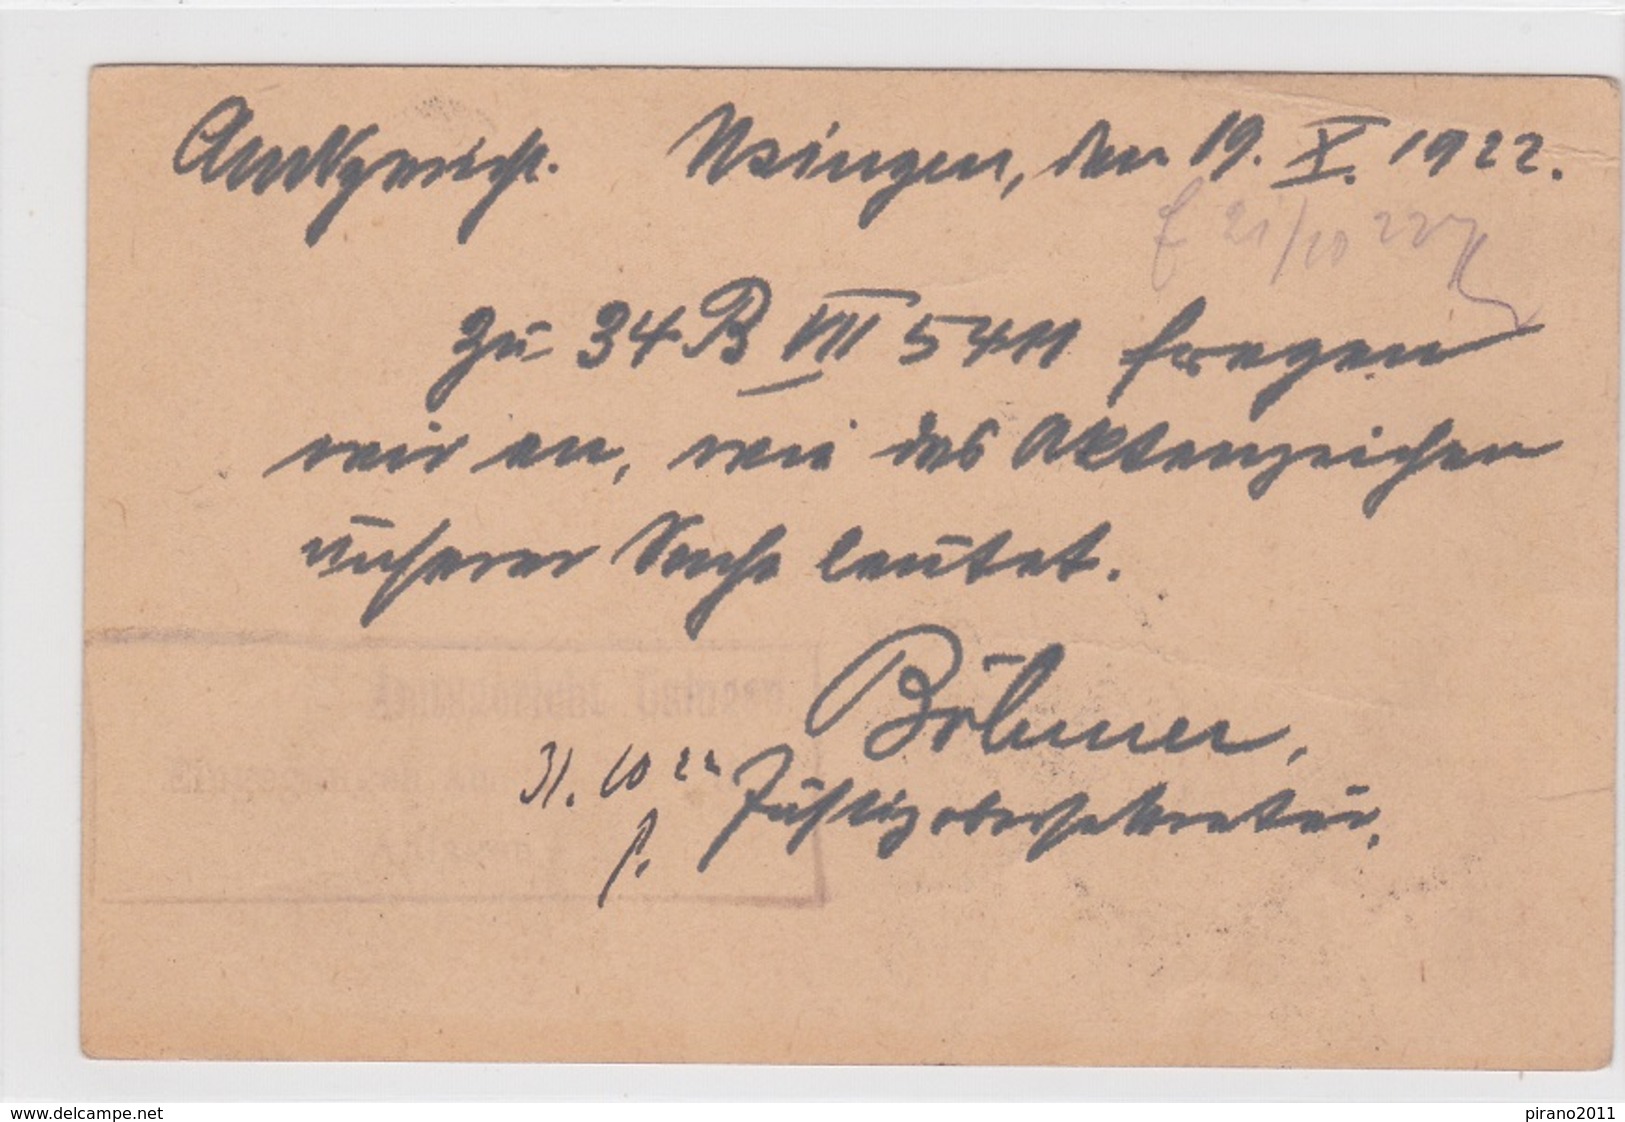 Amtsgericht. Usingen, den 19. X. 1922.
21/10 22
Zu 34 B VIII 5411 fragen
wir an, wie das Aktenzeichen
unserer Sache lautet.
Böhmer,
Justizobersekretär.
31. 10 22
Amtsgericht Usingen
www.delcampe.net
pirano2011